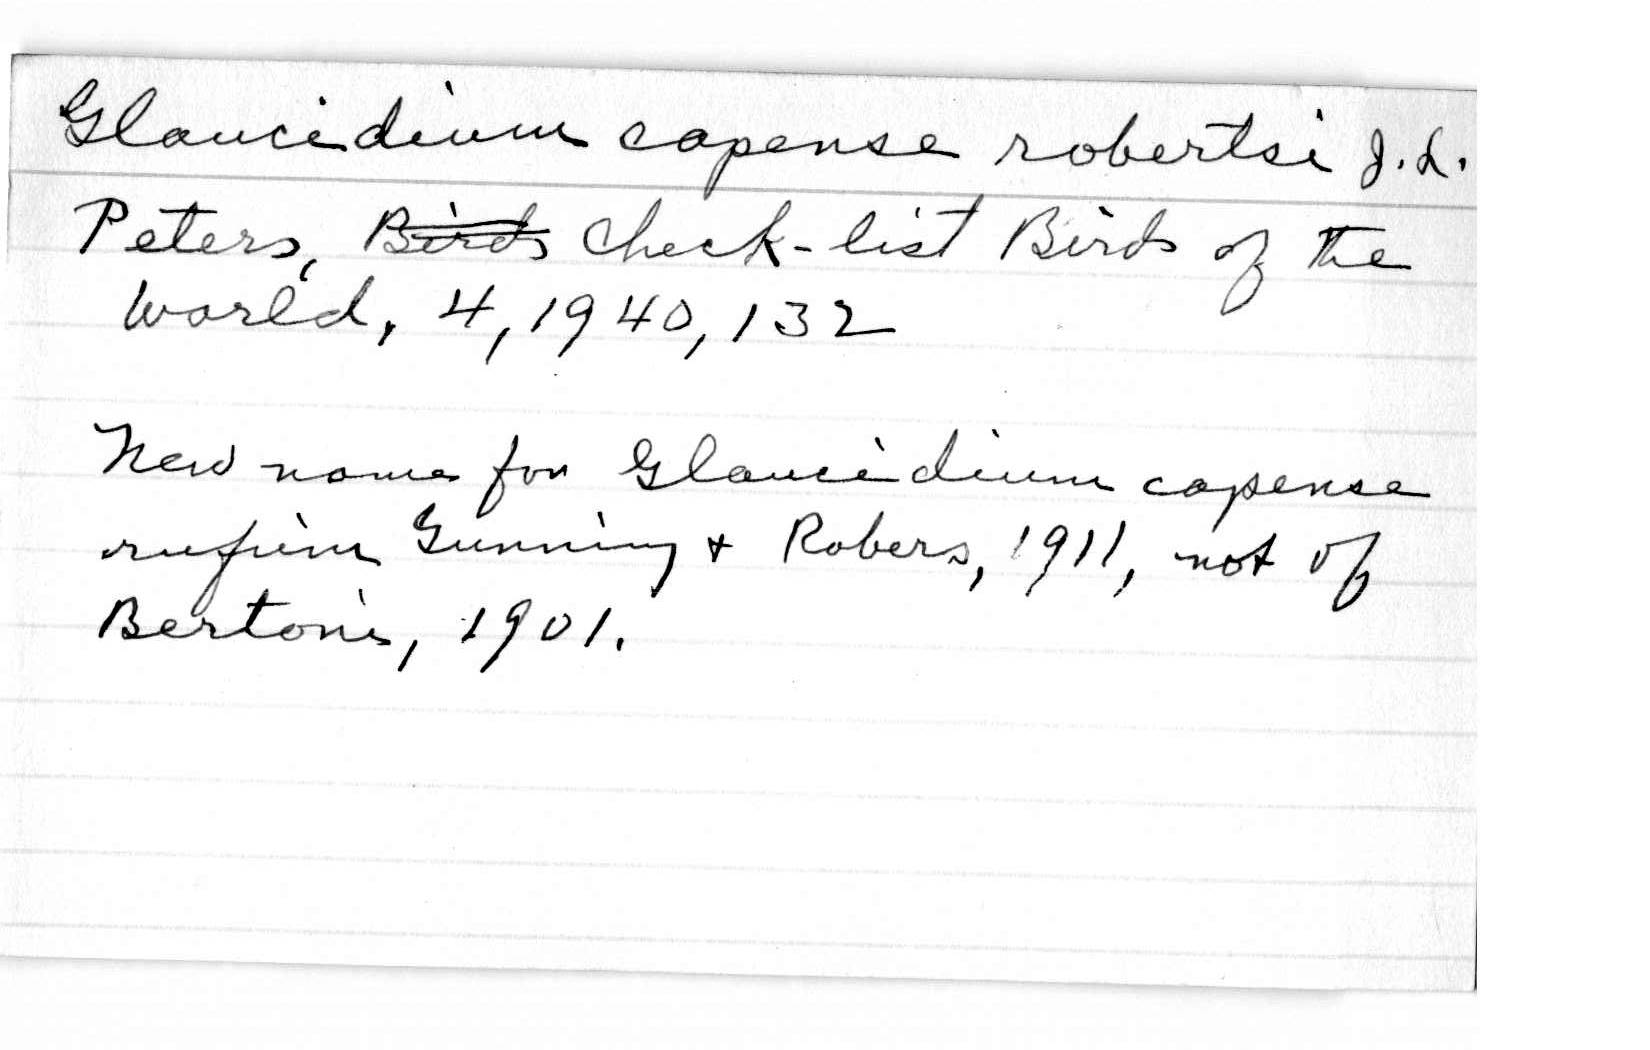 Glaucidium capense robertsi J. L.
Peters, Birds Check-list Birds of the
World, 4, 1940, 132
New name for Glaucidium capense
rufum Gunning + Robers, 1911, not of
Bertoni, 1901.